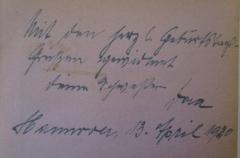 Mit den herzl. Geburtstags-
Grüßen gewidmet
deine Schwester
Hannover, 13. April 1920